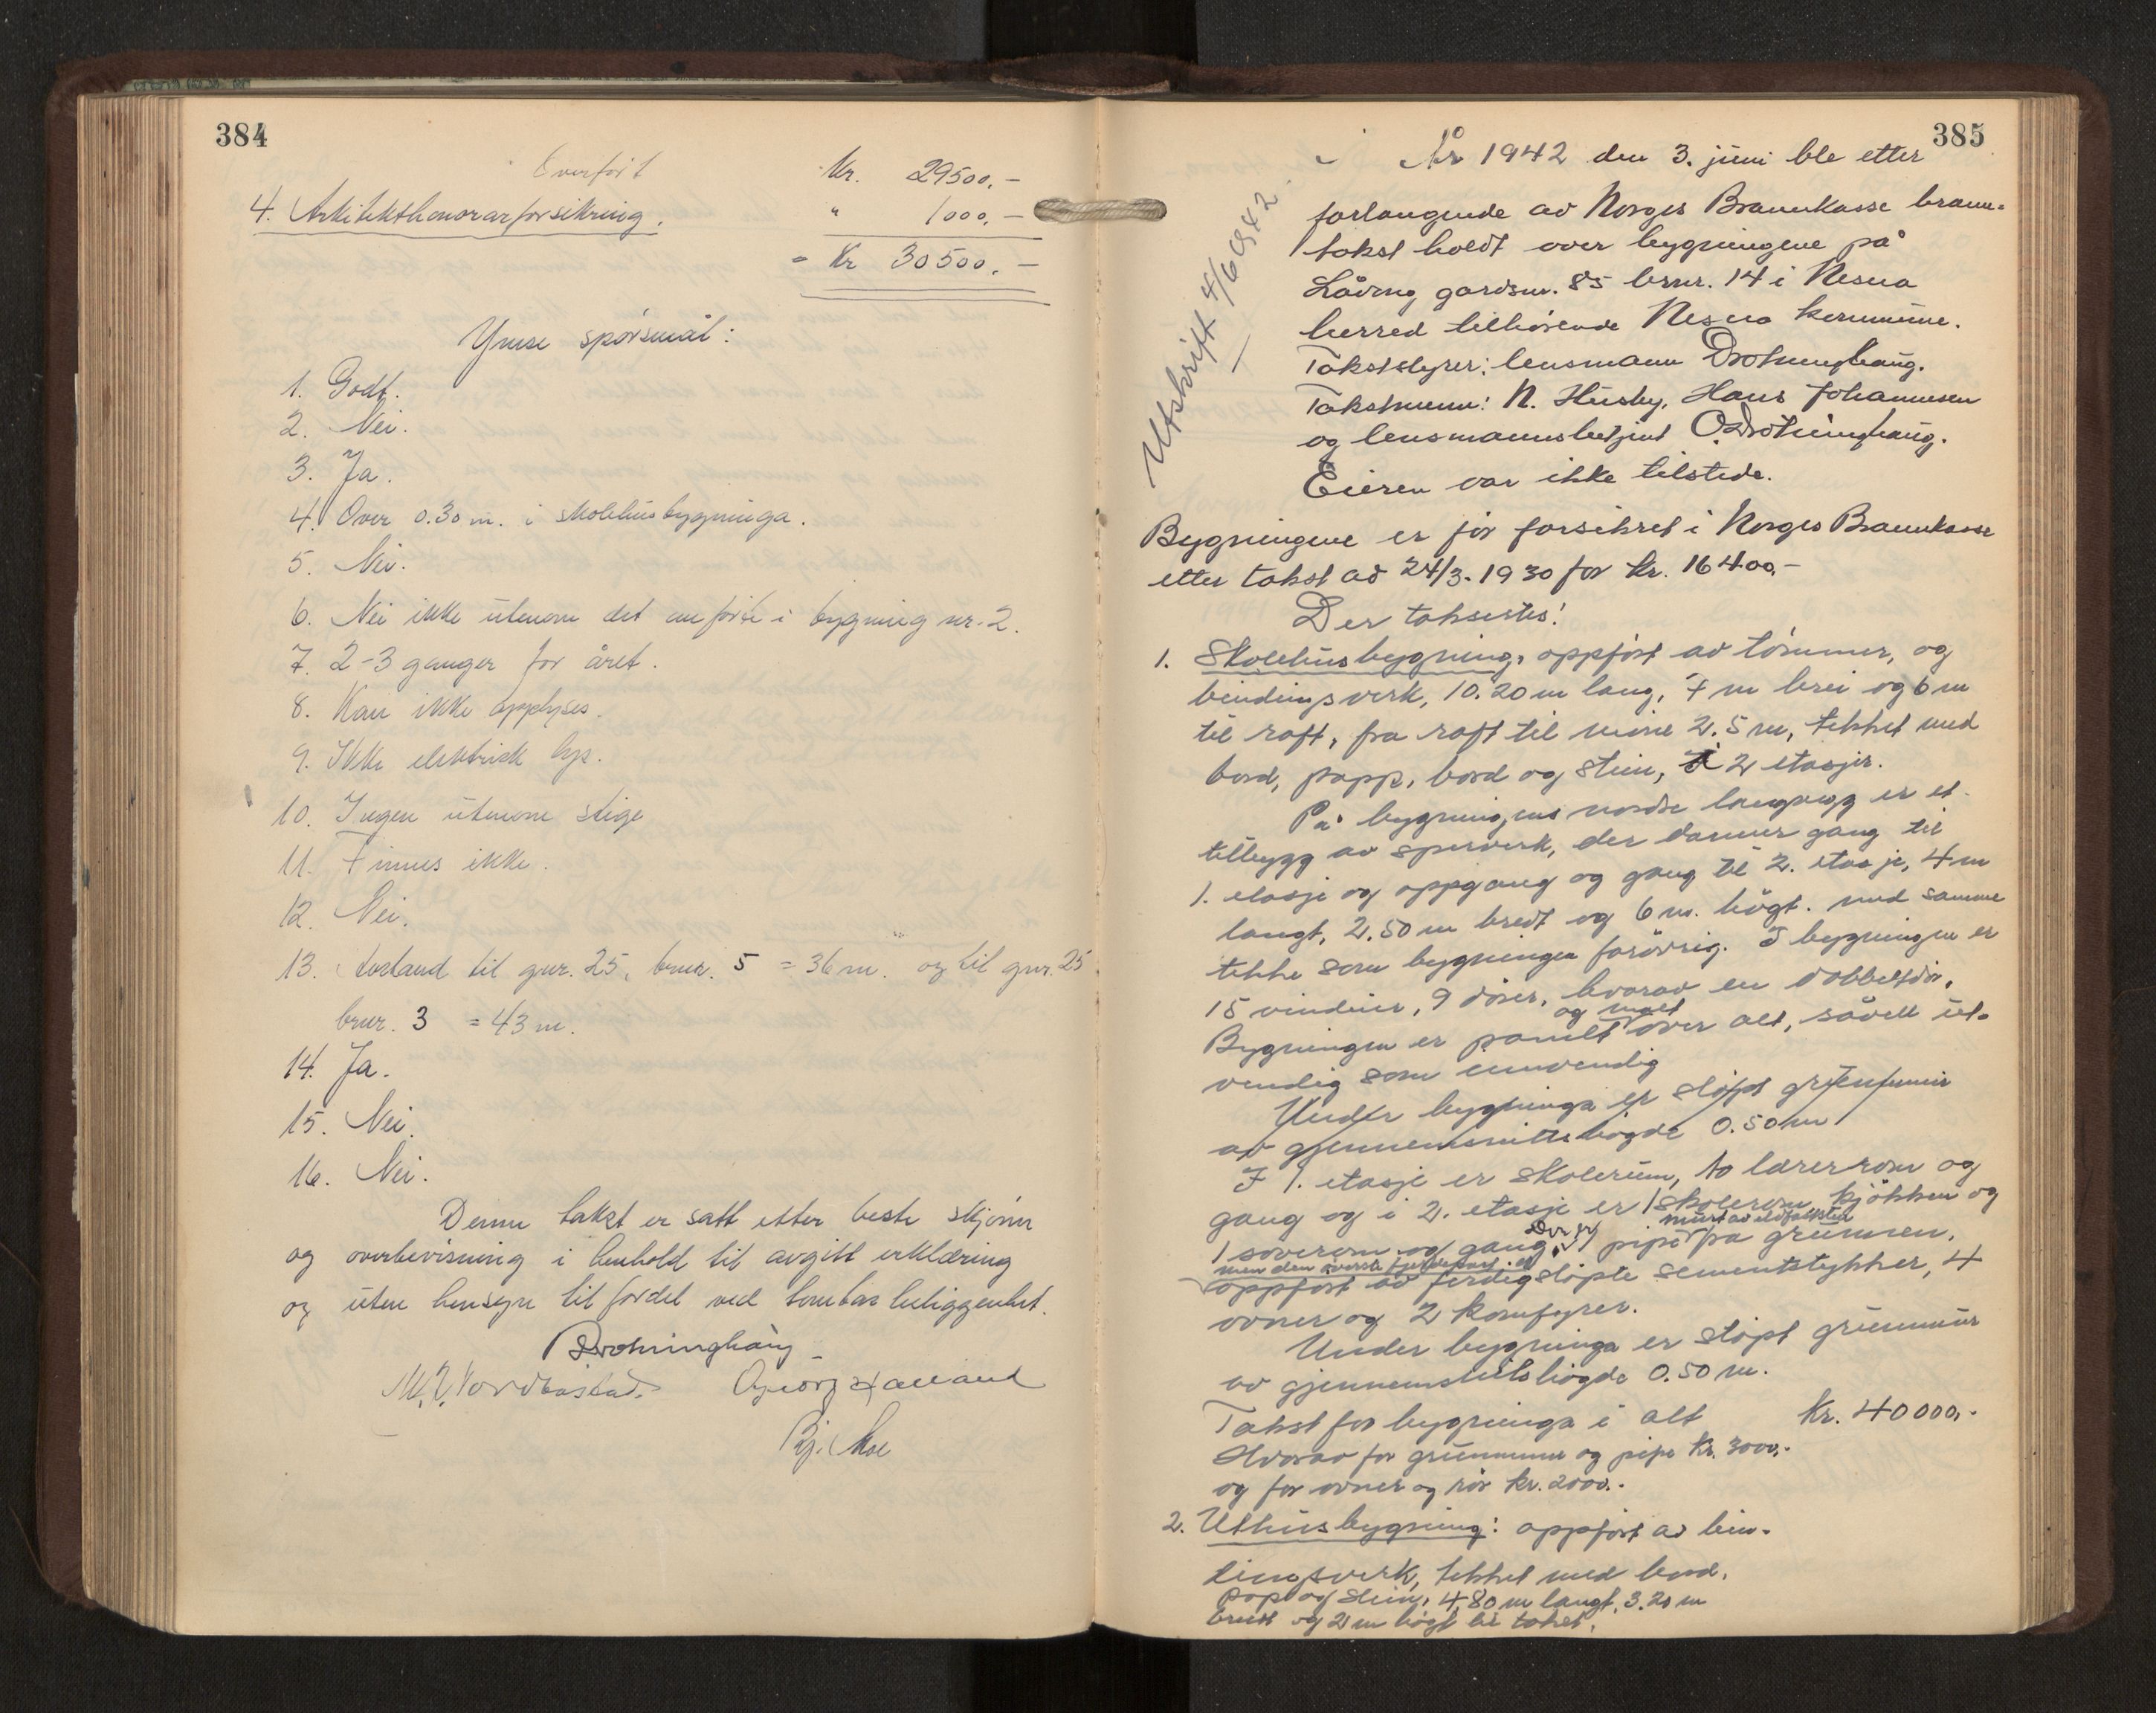 384
Overført Kr. 29500.-
4. Arkitekthonorarforsikring. " 1000.-
= Kr 30500.-
Ymse spørsmål:
1. Godt.
2. Nei.
3. Ja.
4. Over 0.30 m. i skolehusbygninga.
5. Nei.
6. Nei ikke utenom det anførte i bygning nr. 2.
7. 2-3 ganger for året.
8. Kan ikke opplyses.
9. Ikke elektrisk lys.
10. Ingen utenom stige
11. Finnes ikke.
12. Nei.
13. Avstand til gnr. 25, bnr. 5 = 36 m. og til gnr. 25
bnr. 3 = 43 m.
14. Ja.
15. Nei.
16. Nei.
Denne takst er satt etter beste skjønn
og overbevisning i henhold til avgitt erklæring
og uten hensyn til fordel ved tomtas beliggenhet.
Drotninghaug
385
Utskrift 4/6 1942
År 1942 den 3. juni ble etter
forlangende av Norges Brannkasse brann-
takst holdt over bygningene på
Låving gardsnr. 85 brnr. 14 i Nesna
herred tilhørende Nesna kommune.
Takststyrer: lensmann Drotninghaug.
Takstmenn: N. Husby, Hans Johannesen
og lensmannsbetjent O. Drotninghaug.
Eieren var ikke tilstede.
Bygningene er før forsikret i Norges Brannkasse
etter takst av 24/3. 1930 for kr. 16400.-
Der taksertes:
1. Skolehusbygning, oppført av tømmer, og
bindingsverk, 10.20 m lang, 7 m brei og 6 m
til raft, fra raft til møne 2.5 m, tekket med
bord, papp, bord og stein, 2 etasjer.
På bygningens nordre langvegg er et
tilbygg av sperverk, der danner gang til
1. etasje og oppgang og gang til 2. etasje, 4 m
langt, 2.50 m bredt og 6 m. høgt. med samme
tekke som bygningen forøvrig. I bygningen er
15 vinduer, 9 dører, hvorav en dobbeltdør.
og malt
Bygningen er panelt over alt, såvell ut-
vendig som innvendig
Under bygninga er støpt grunnmur
av gjennemsnittshøgde 0.50 m
I 1. etasje er skolerum, to lærerrom og
gang og i 2. etasje er 1 skolerom, kjøkken og
Der er murt av ildfaststein
1 soverom og gang. 1 pipe på grunnen,
men den øverste fjerdepart er
oppført av ferdigstøpte sementstykker, 4
ovner og 2 komfyrer.
Under bygninga er støpt grunnmur
av gjennemsnitshøgde 0.50 m.
Takst for bygninga i alt kr. 40000.-
Hvorav for grunnmur og pipe kr. 3000.-
og for ovner og rør kr. 2000.-
2. Uthusbygning: oppført av bin-
dingsverk, tekket med bord,
papp og stein, 4,80 m langt, 3.20 m
bredt og 2 m høgt til taket.